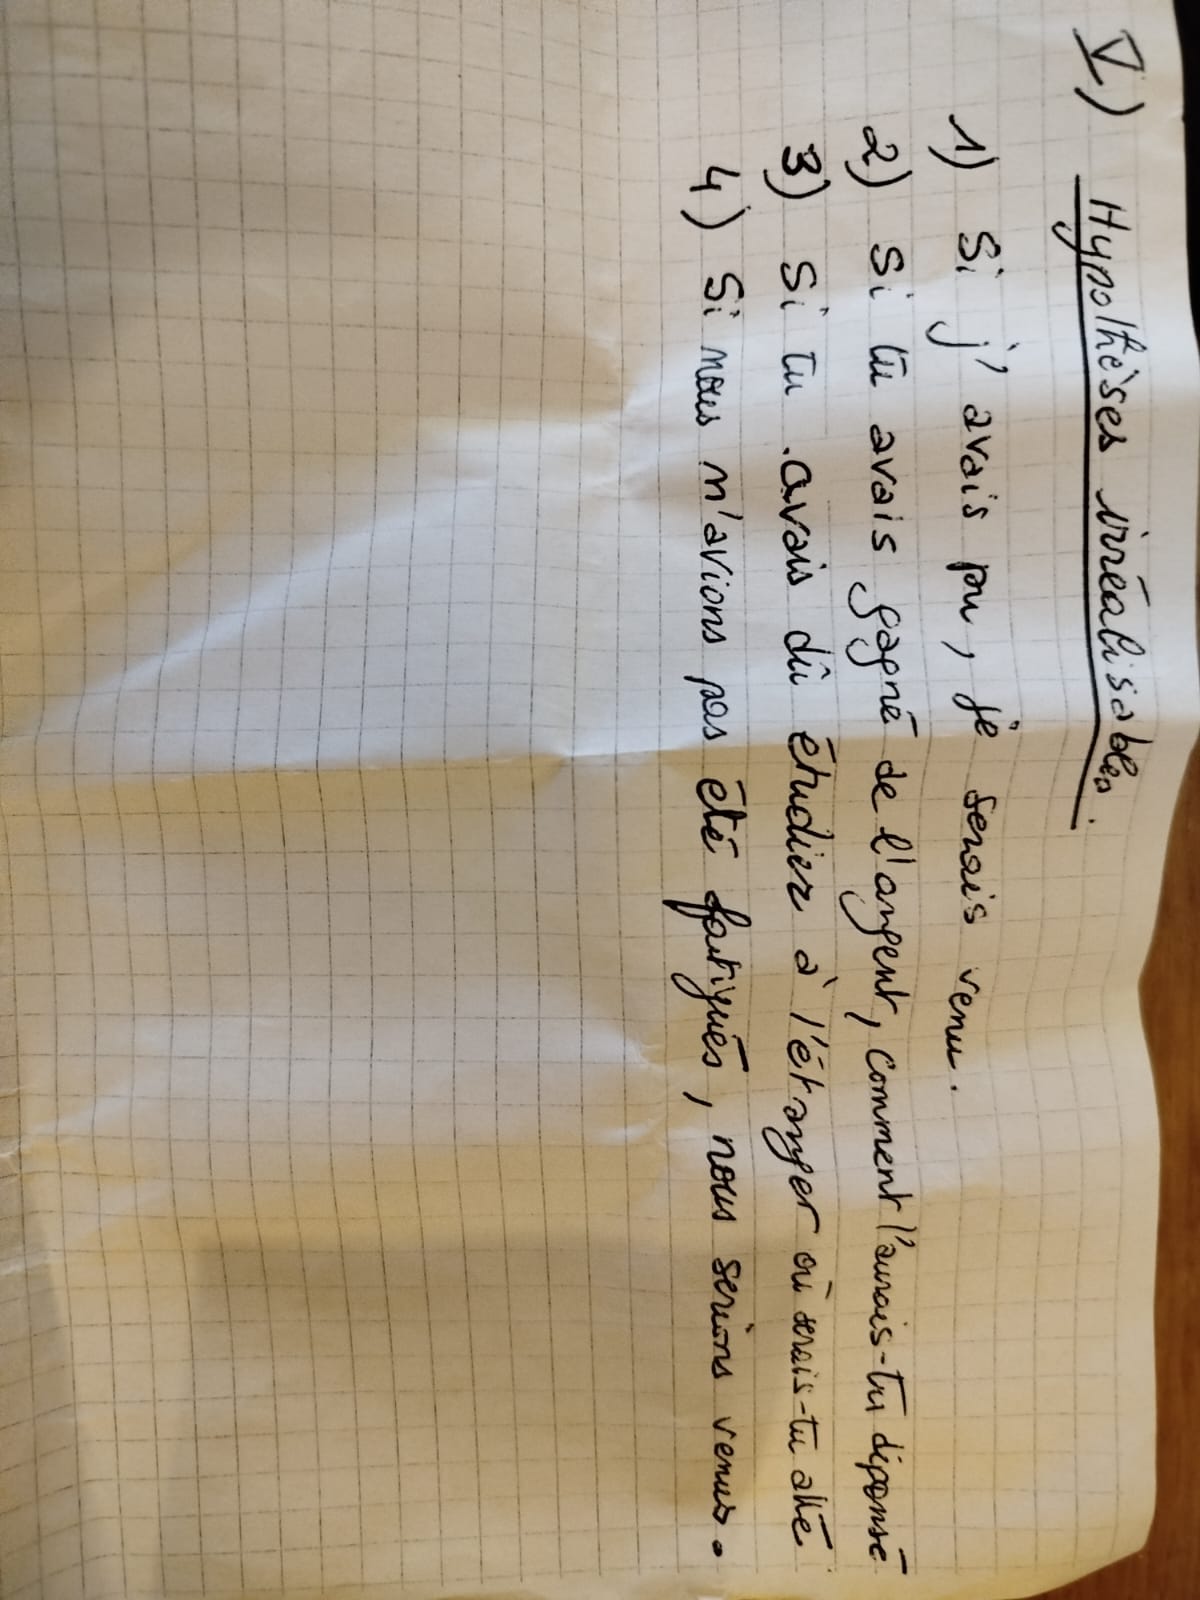 V) Hypothèses irréalisables.
1) Si j'avais pu, je serais venu.
2) Si tu avais gagné de l'argent, comment l'aurais-tu dépensé
3) Si tu avais dû étudier à l'étranger où serais-tu allé
4) Si nous n'avions pas été fatigués, nous serions venus.